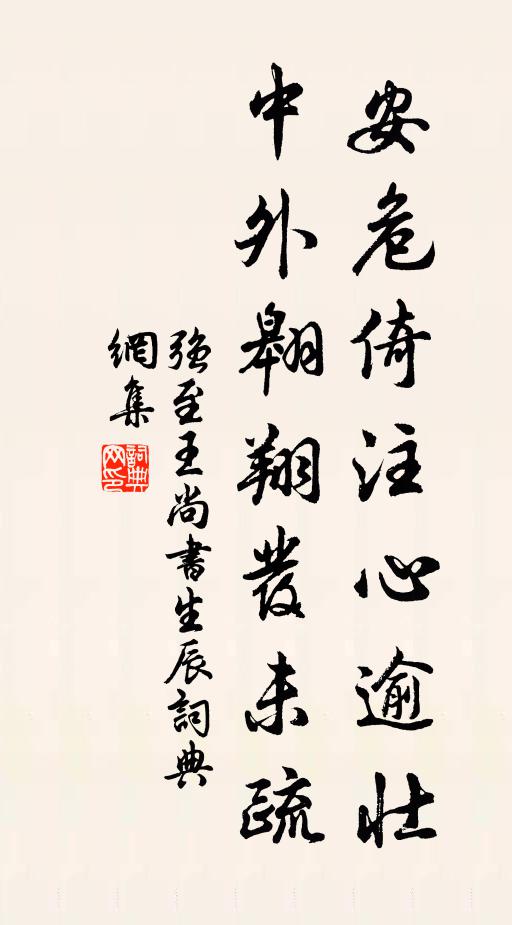 安危倚注心逾壮
中外翱翔发未疏
强至王尚书生辰词典
网集
词典网印